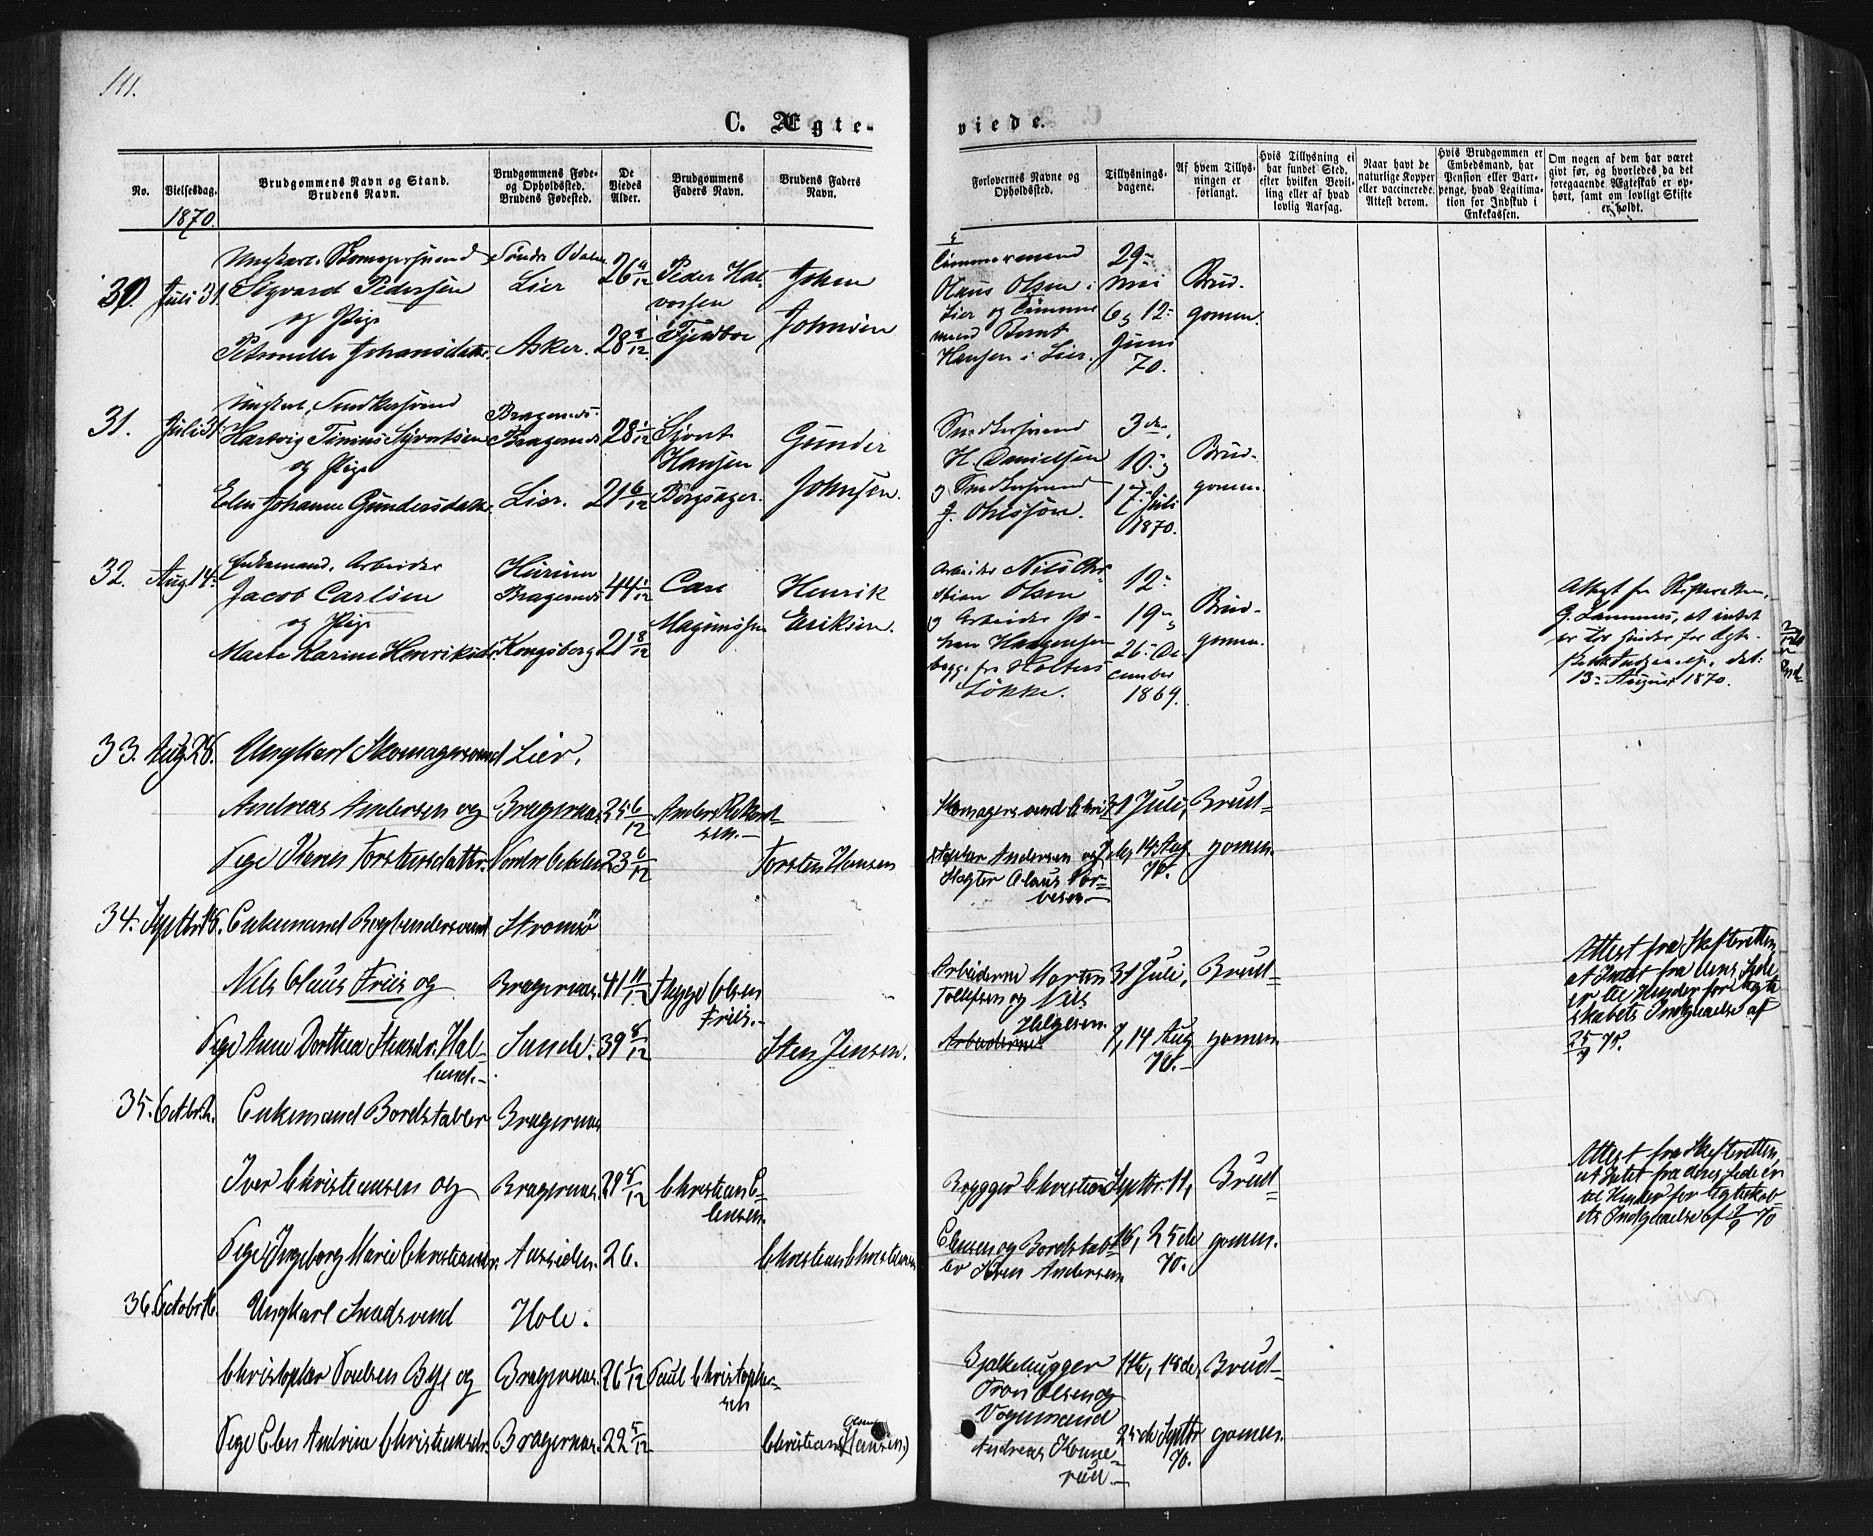 111.
C. Ægte-
viede.
No.
Vielsesdag.
Brudgommens Navn og Stand.
Brudens Navn.
Brudgommens Føde-
og Opholdssted.
Brudens Fødested.
De
Viedes
Alder.
Brudgommens
Faders Navn.
Brudens Faders
Navn.
Forlovernes Navne og
Opholdssted.
Tillysnings-
dagene.
Af hvem Tillys-
ningen er
forlangt.
Hvis Tillysning ei
har fundet Sted,
efter hvilken Bevil-
ling eller af hvad
lovlig Aarsag.
Naar havt de
naturlige Kopper
eller vaccinerede.
Attest derom.
Hvis Brudgommen er
Embedsmand, har
Pension eller Vart-
penge, hvad Legitima-
tion for Indskud i
Enkekassen.
Om nogen af dem har været
gift før, og hvorledes da det
foregaaende Ægteskab er op-
hørt, samt om lovligt Skifte
er holdt.
1870.
30. Juli 31.
Sigvard Pedersen
og Pige
Petronille Johansdatter
Søndre Odalen
Lier
Asker.
26 9/12
28 8/12
Peder Hal-
vorsen
Fjeldboe
Johan
Johnsen
Tømmermand
Olaus Olsen i
Lier og Tømmer-
mand Bernt
Hansen i Lier.
29de
Mai
6, 12
Juni
70.
Brud-
gommen.
31. Juli 31
Ungkarl, Snedkersvend
Hartvig Tinius Syvertsen
og Pige
Elen Johanne Gundersdatter
Bragernæs
Bragernæs
Lier.
28 1/12
21 6/12
Syvert
Hansen
Borgsager.
Gunder
Johnsen.
Snedkersvend
H. Danielsen
og Snedkersvend
J.
3die,
10de
17de Juli
1870.
Brud-
gommen.
32. Aug. 14.
Enkemand, Arbeider
Jacob Carlsen
og Pige
Marte Karine Henriksdr.
Hurum
Bragernæs
Kongsberg
44 1/12
21 8/12
Carl
Magnussen
Henrik
Eriksen.
Arbeider Nils Chr-
stian Olsen
og Arbeider Jo-
han Haagensen
begge fra Holters
Løkke.
12
19
26 De-
cember
1869.
Brud-
gommen.
Attest fra Skifteretten,
at intet
er til Hinder for Egte-
13 August 1870.
33. Aug 28.
Ungkarl Skomagersvend
Andreas Andersen og
Pige Karen Torstensdatter.
Lier,
Bragernæs.
25 6/12
23 6/12
Anders
sen.
Torsten Hansen
Skomagersvend Chri-
stopher Andersen og
Slagter Olaus Tor-
besen
31 Juli,
7de, 14 Aug
70.
Brud-
gommen.
34. Septbr 18.
Enkemand Bogbindersvend
Nils Claus Friis og
Pige Anne Dorthea Stensdr. Hal-
lund.
Strømsø
Bragernæs.
Sande.
41 11/12
39 8/12
Thygge Olsen
Friis.
Sten Jensen.
Arbeiderne Morten
Tollefsen og Nils
Helgesen.
Arbeiderne
31 Juli,
7, 14 Aug
70.
Brud-
gommen.
Attest fra Skifteretten,
at Intet fra dens Side
er til Hinder for Egte
skabets Indgaaelse af
35. Octbr. 2.
Enkemand Bordstabler
Iver Christensen og
Pige Ingeborg Marie Christiansdr.
Bragernæs
Bragernæs.
29 8/12
26.
Christian C-
lausen.
Christian Christensen
Brygger Christian
Clausen og Bordstab-
ler Iver Andersen
Septbr. 11,
18, 25de
70.
Brud-
gommen.
Attest fra Skifteretten,
at Intet fra dens Side er
til Hinder for Egteskab-
ets Indgaaelse af 7/9 70
36. Octobr 16.
Ungkarl Smedsvend
Christopher Poulsen Bye og
Pige Elen Andrine Christiansdr.
Hole.
Bragernæs.
Bragernæs.
26 1/12
22 5/12
Paul Christophe-
sen
Christian Hansen)
Olsen
Bjelkehugger
Tron Olsen og
Vognmand
Andreas
11te, 18de,
25de Septbr
70.
Brud-
gommen.